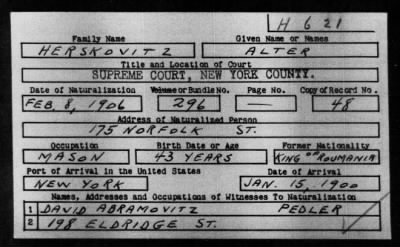 H 621
Family Name Given Name or Names
HERSKOVITZ ALTER
Title and Location of Court
SUPREME COURT, NEW YORK COUNTY.
Date of Naturalization Volume or Bundle No. Page No. Copy of Record No.
FEB. 8, 1906 296 — 48
Address of Naturalized Person
175 NORFOLK ST.
Occupation Birth Date or Age Former Nationality
MASON 43 YEARS KING OF ROUMANIA
Port of Arrival in the United States Date of Arrival
NEW YORK JAN. 15, 1900
Names, Addresses and Occupations of Witnesses To Naturalization
1 DAVID ABRAMOVITZ PEDLER
2 198 ELDRIDGE ST.